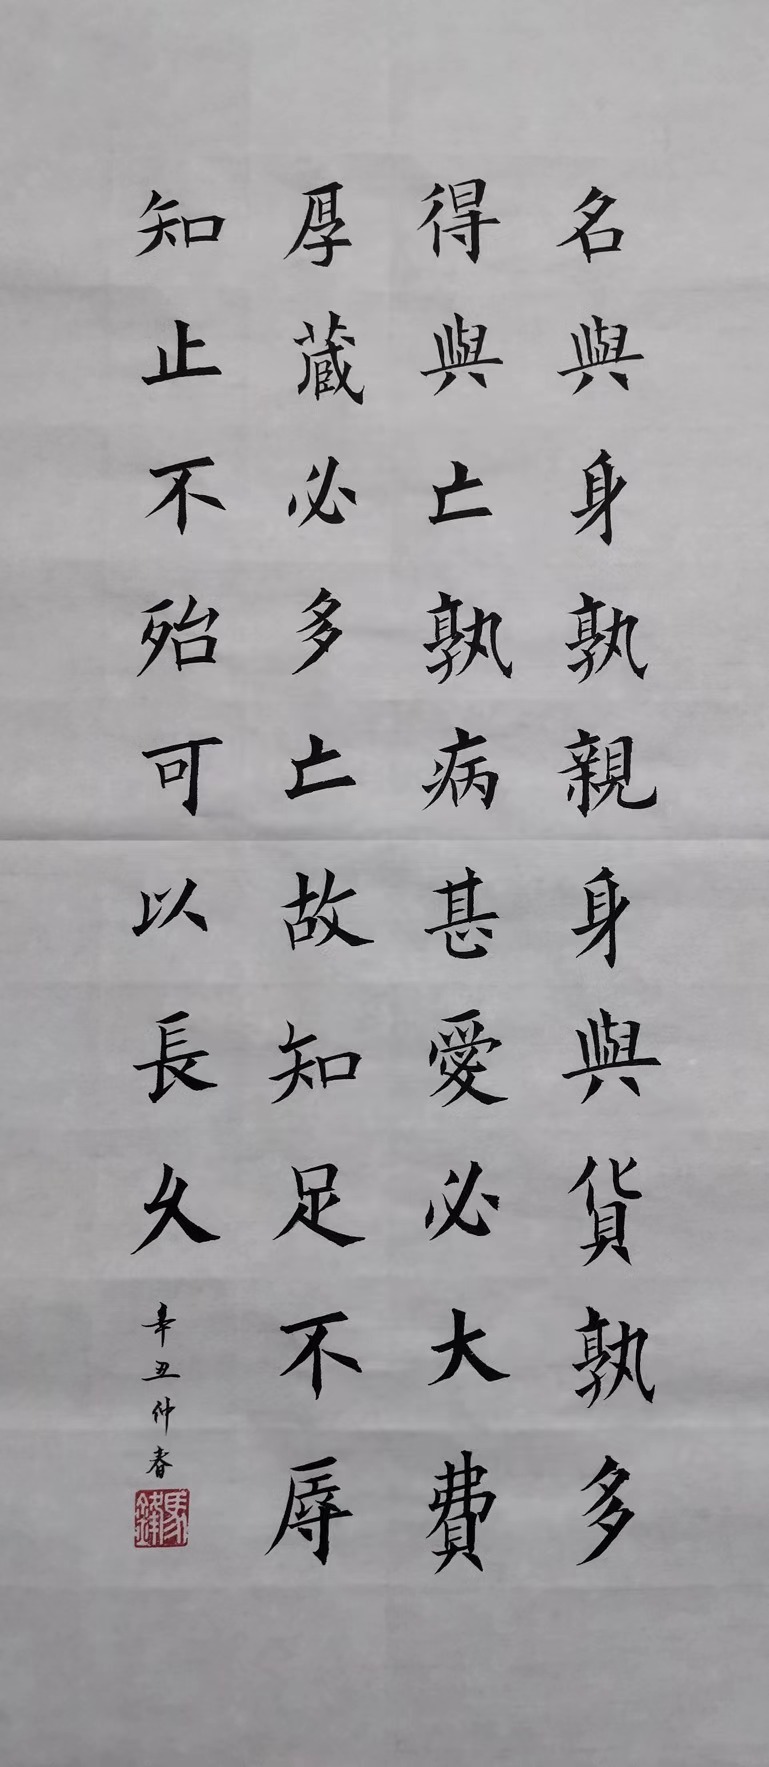 名與身孰親身與貨孰多
得與亡孰病甚愛必大費
厚蔵必多亡故知足不辱
知止不殆可以長久
辛丑仲春